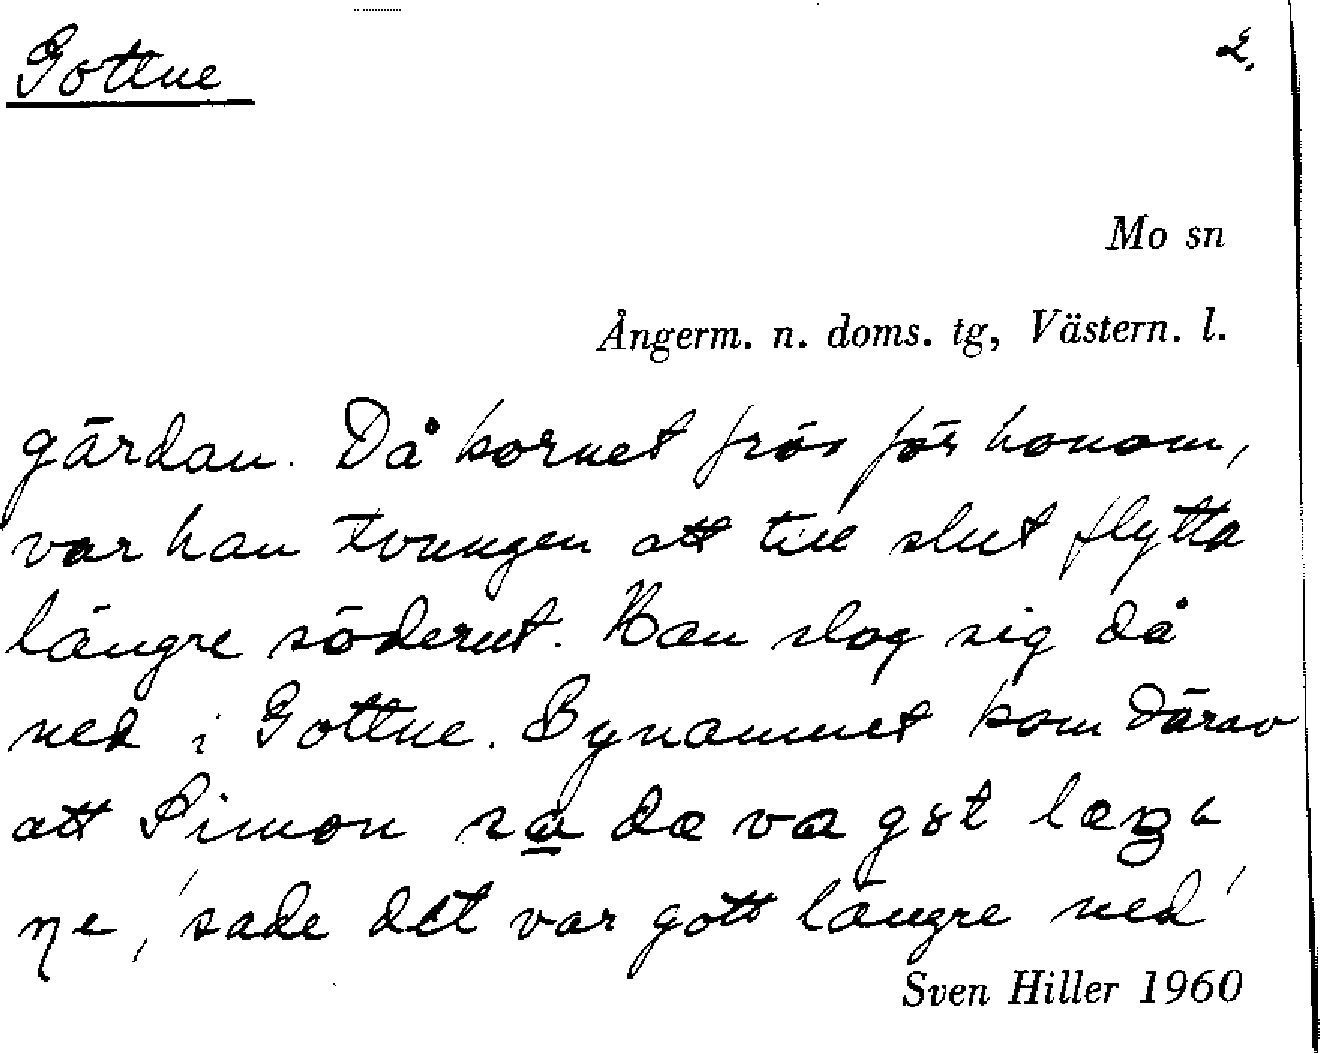 Gottne
2.
Mo sn
Ångerm. n. doms. tg, Västern. l.
gärdan. Då kornet frös för honom,
var han tvungen att till slut flytta
längre söderut. Han slog sig då
ned i Gottne. Bynamnet kom därav
att Simon sa da va gɔt
, 'sade det var gott längre ned'
Sven Hiller 1960